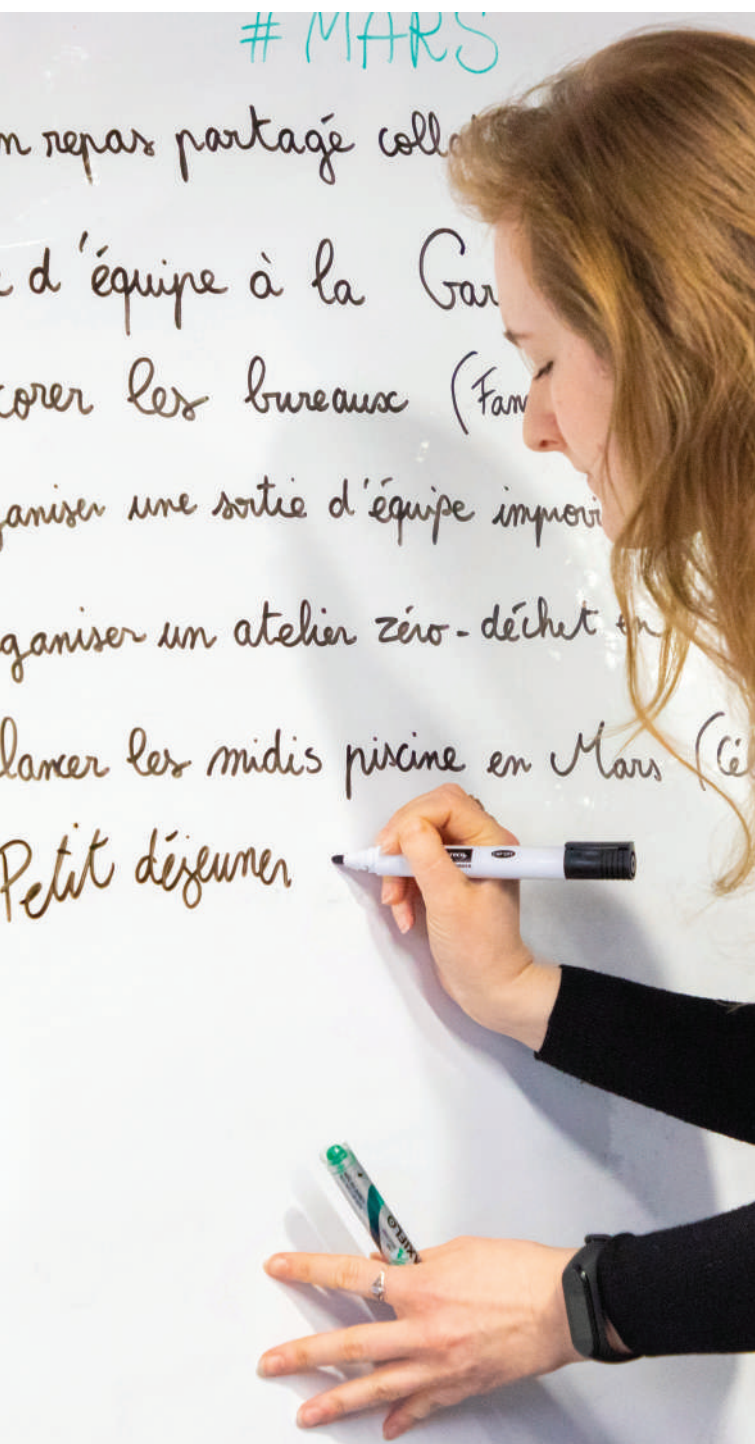 # MARS
n repas partagé coll
d'équipe à la Gar
corer les bureaux (Fan
ganiser une sortie d'équipe improvi
ganiser un atelier zéro-déchet en
lancer les midis piscine en Mars (Cé
Petit déjeuner